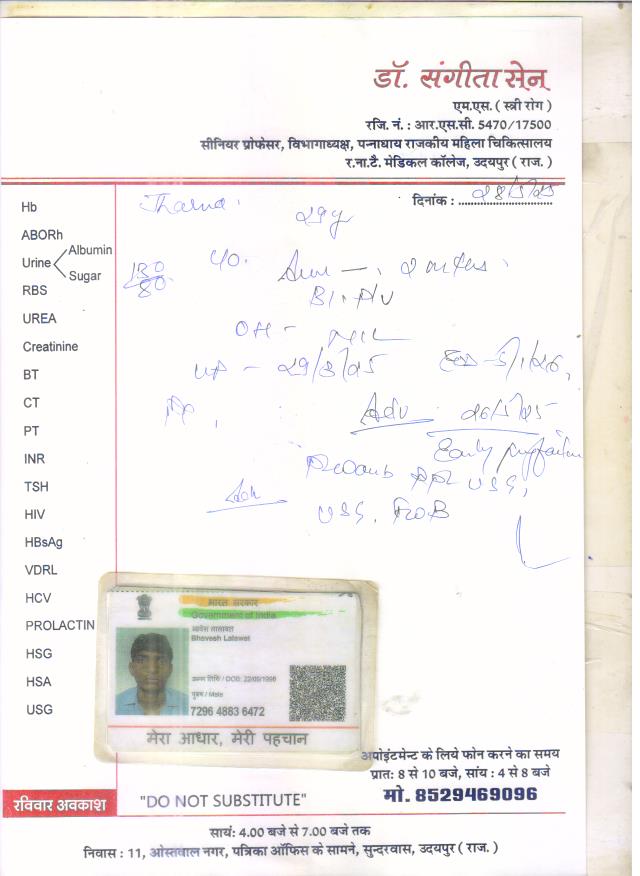 डॉ. संगीता सेन
एम.एस. ( स्त्री रोग )
रजि. नं. : आर.एस.सी. 5470/17500
सीनियर प्रोफेसर, विभागाध्यक्ष, पन्नाधाय राजकीय महिला चिकित्सालय
र.ना.टै. मेडिकल कॉलेज, उदयपुर ( राज. )
दिनांक : 28/5/25
29y
130/80
Hb
ABORh
Urine Albumin
Sugar
RBS
UREA
Creatinine
BT
CT
PT
INR
TSH
HIV
HBsAg
VDRL
HCV
PROLACTIN
HSG
HSA
USG
2 months
Bl. P/V
OH - NIL
LMP - 29/3/25 EDD - 5/1/26,
Adv 26/5/25
Early
USG,
Adv
USG,
भारत सरकार
Government of India
भावेश लालावत
Bhavesh Lalawat
जन्म तिथि / DOB: 22/09/1998
पुरुष / Male
7296 4883 6472
मेरा आधार, मेरी पहचान
अपोइंटमेन्ट के लिये फोन करने का समय
प्रात: 8 से 10 बजे, सांय : 4 से 8 बजे
मो. 8529469096
रविवार अवकाश
"DO NOT SUBSTITUTE"
सायं: 4.00 बजे से 7.00 बजे तक
निवास : 11, ओस्तवाल नगर, पत्रिका ऑफिस के सामने, सुन्दरवास, उदयपुर ( राज. )